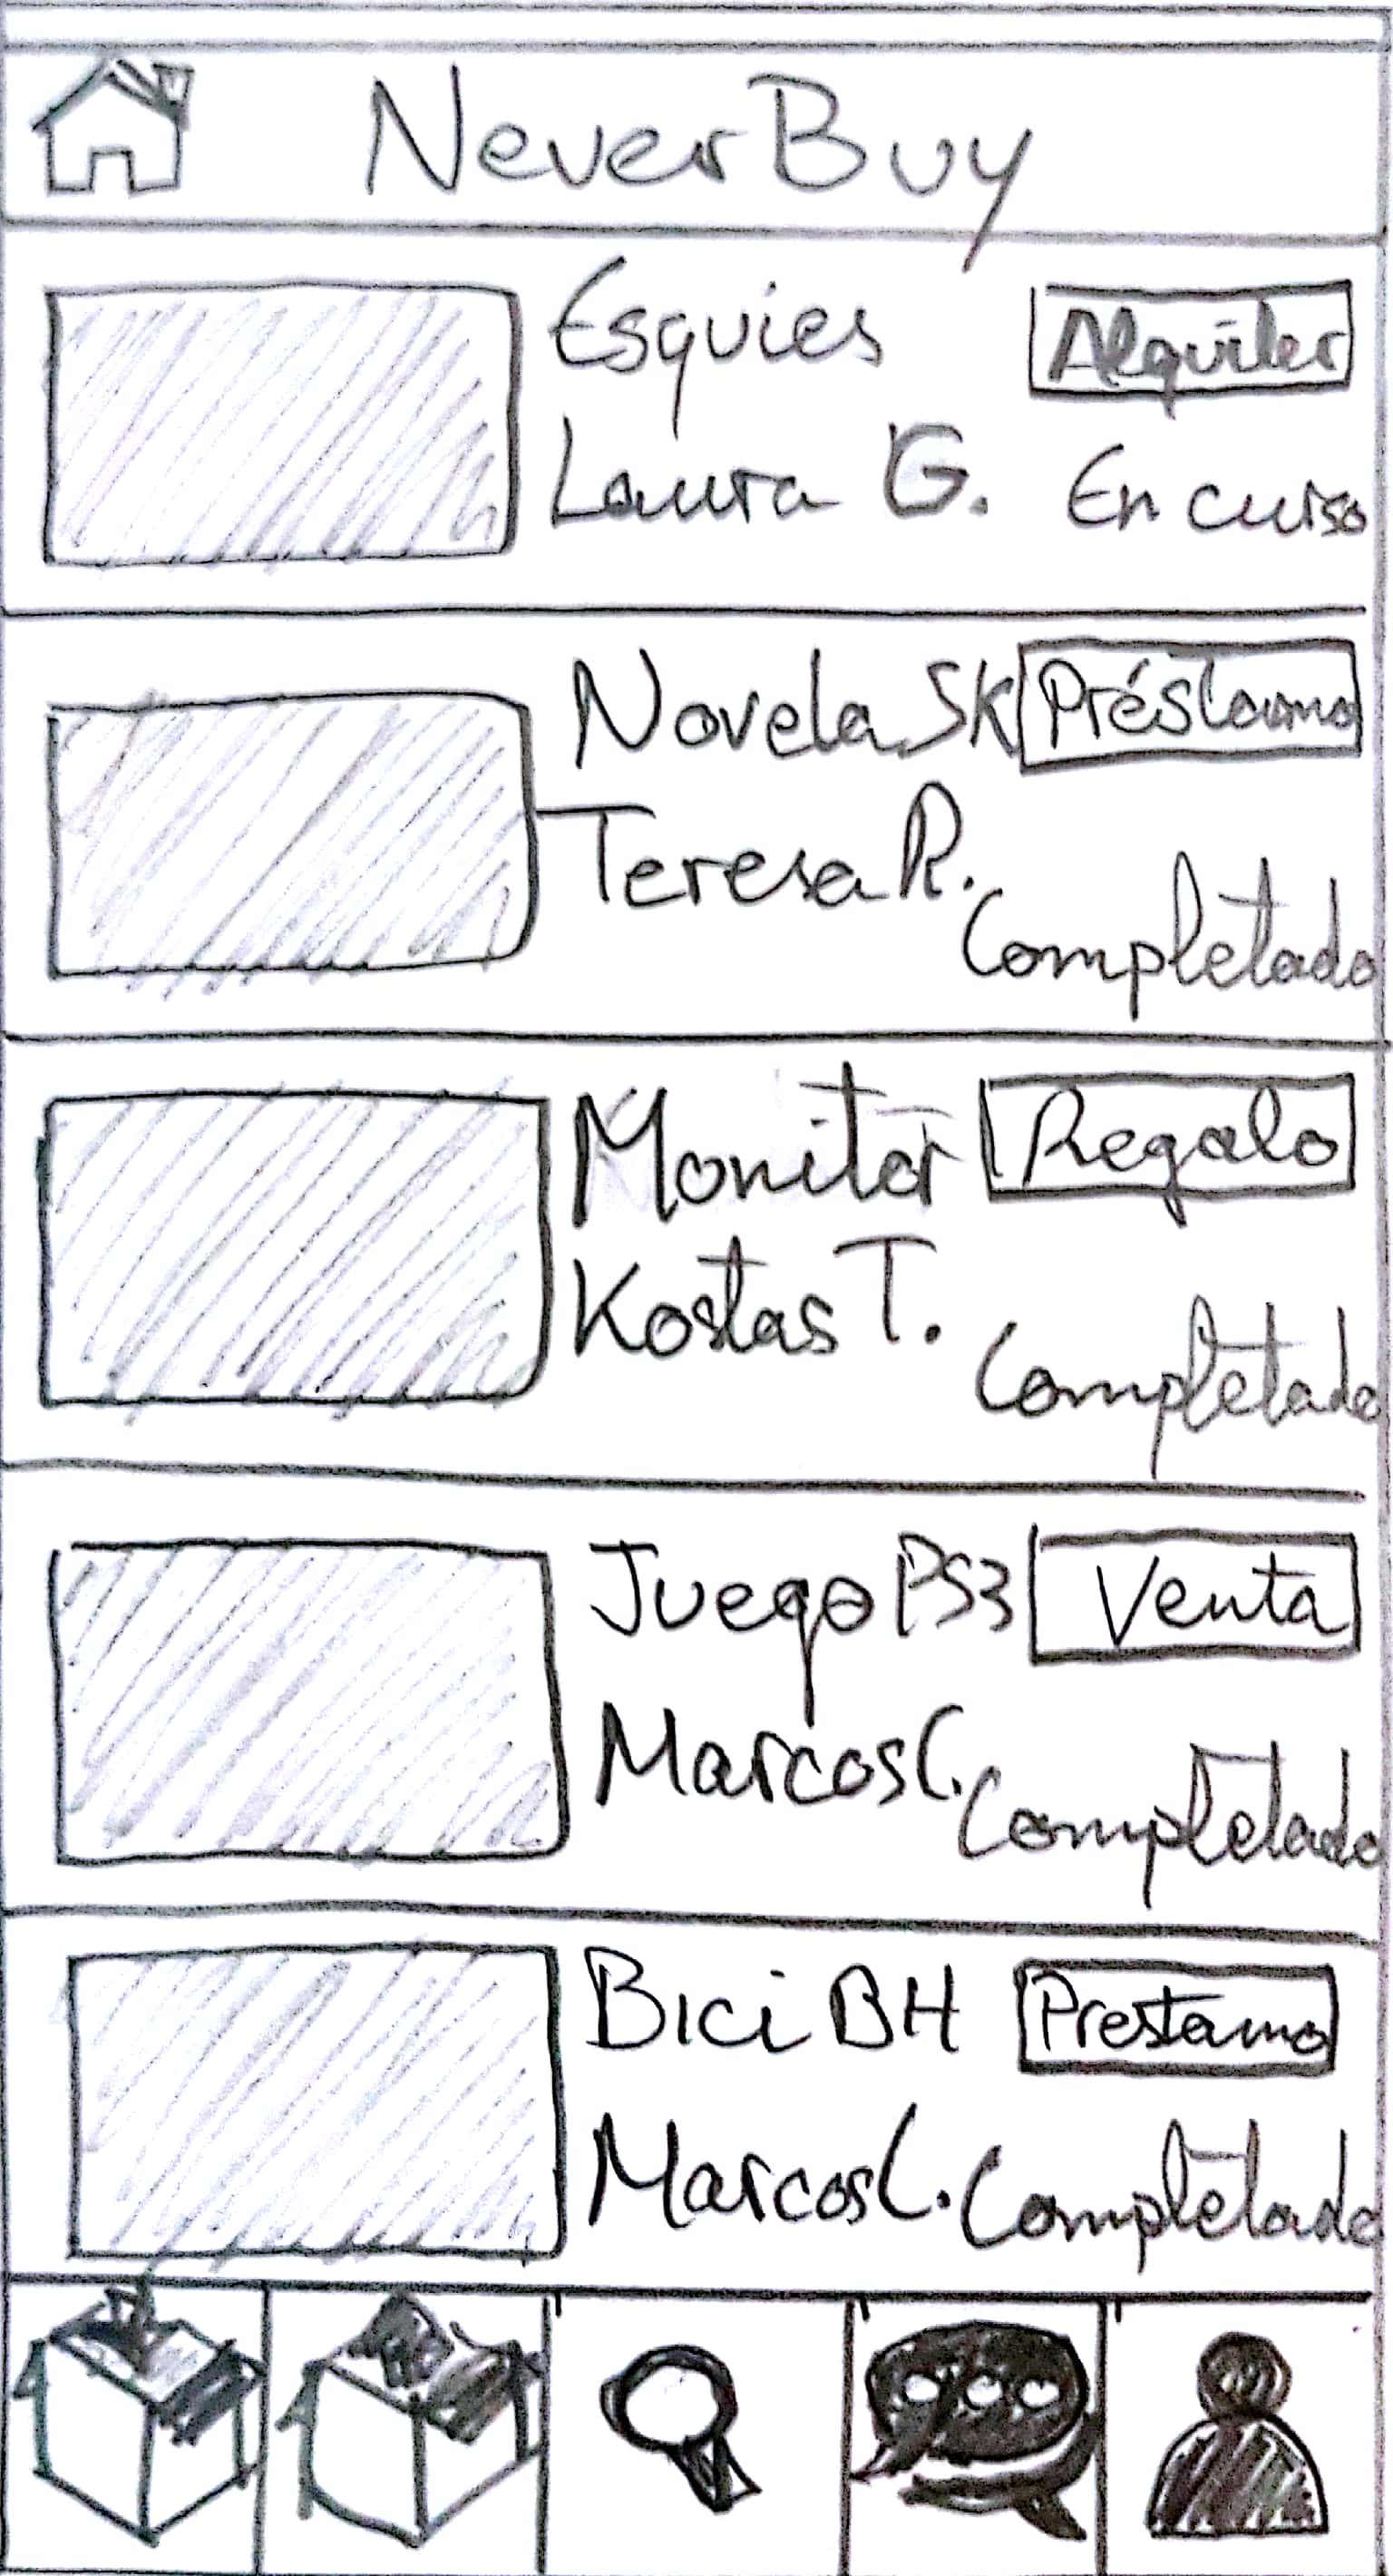 NeverBuy
Esquies Alquiler
Laura G. En curso
Novela SK Préstamo
Teresa R.
Completado
Monitor Regalo
Kostas T.
Completado
Juego PS3 Venta
Marcos C.
Completado
Bici BH Prestamo
Marcos C. Completado